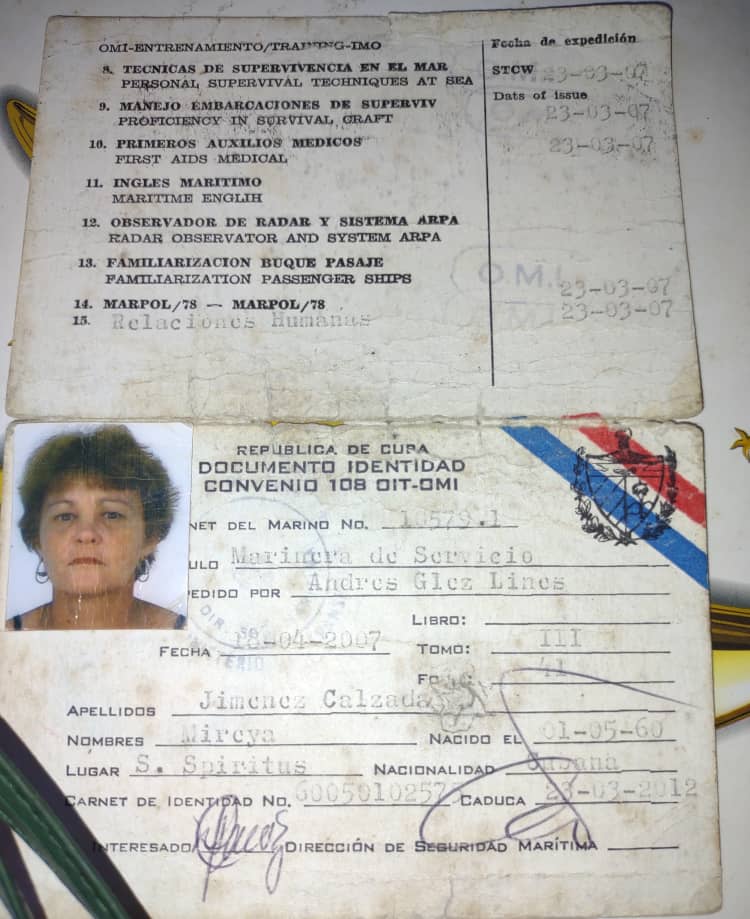 OMI-ENTRENAMIENTO/TRAINING-IMO
Fecha de expedición
8. TECNICAS DE SUPERVIVENCIA EN EL MAR
STCW 23-03-07
PERSONAL SUPERVIVAL TECHNIQUES AT SEA
Dats of issue
9. MANEJO EMBARCACIONES DE SUPERVIV
23-03-07
PROFICIENCY IN SURVIVAL CRAFT
10. PRIMEROS AUXILIOS MEDICOS
23-03-07
FIRST AIDS MEDICAL
11. INGLES MARITIMO
MARITIME ENGLIH
12. OBSERVADOR DE RADAR Y SISTEMA ARPA
RADAR OBSERVATOR AND SYSTEM ARPA
13. FAMILIARIZACION BUQUE PASAJE
O.M.I.
FAMILIARIZATION PASSENGER SHIPS
23-03-07
14. MARPOL/78 — MARPOL/78
23-03-07
15. Relaciones Humanas
REPUBLICA DE CUBA
DOCUMENTO IDENTIDAD
CONVENIO 108 OIT-OMI
NET DEL MARINO NO. 10579.1
ULO Marinera de Servicio
PEDIDO POR Andres Glez Lines
LIBRO:
FECHA 18-04-2007 TOMO: III
41
APELLIDOS Jimenez Calzada
NOMBRES Mireya NACIDO EL 01-05-60
LUGAR S. Spiritus NACIONALIDAD Cubana
CARNET DE IDENTIDAD NO. CADUCA 23-03-2012
INTERESADO DIRECCIÓN DE SEGURIDAD MARÍTIMA